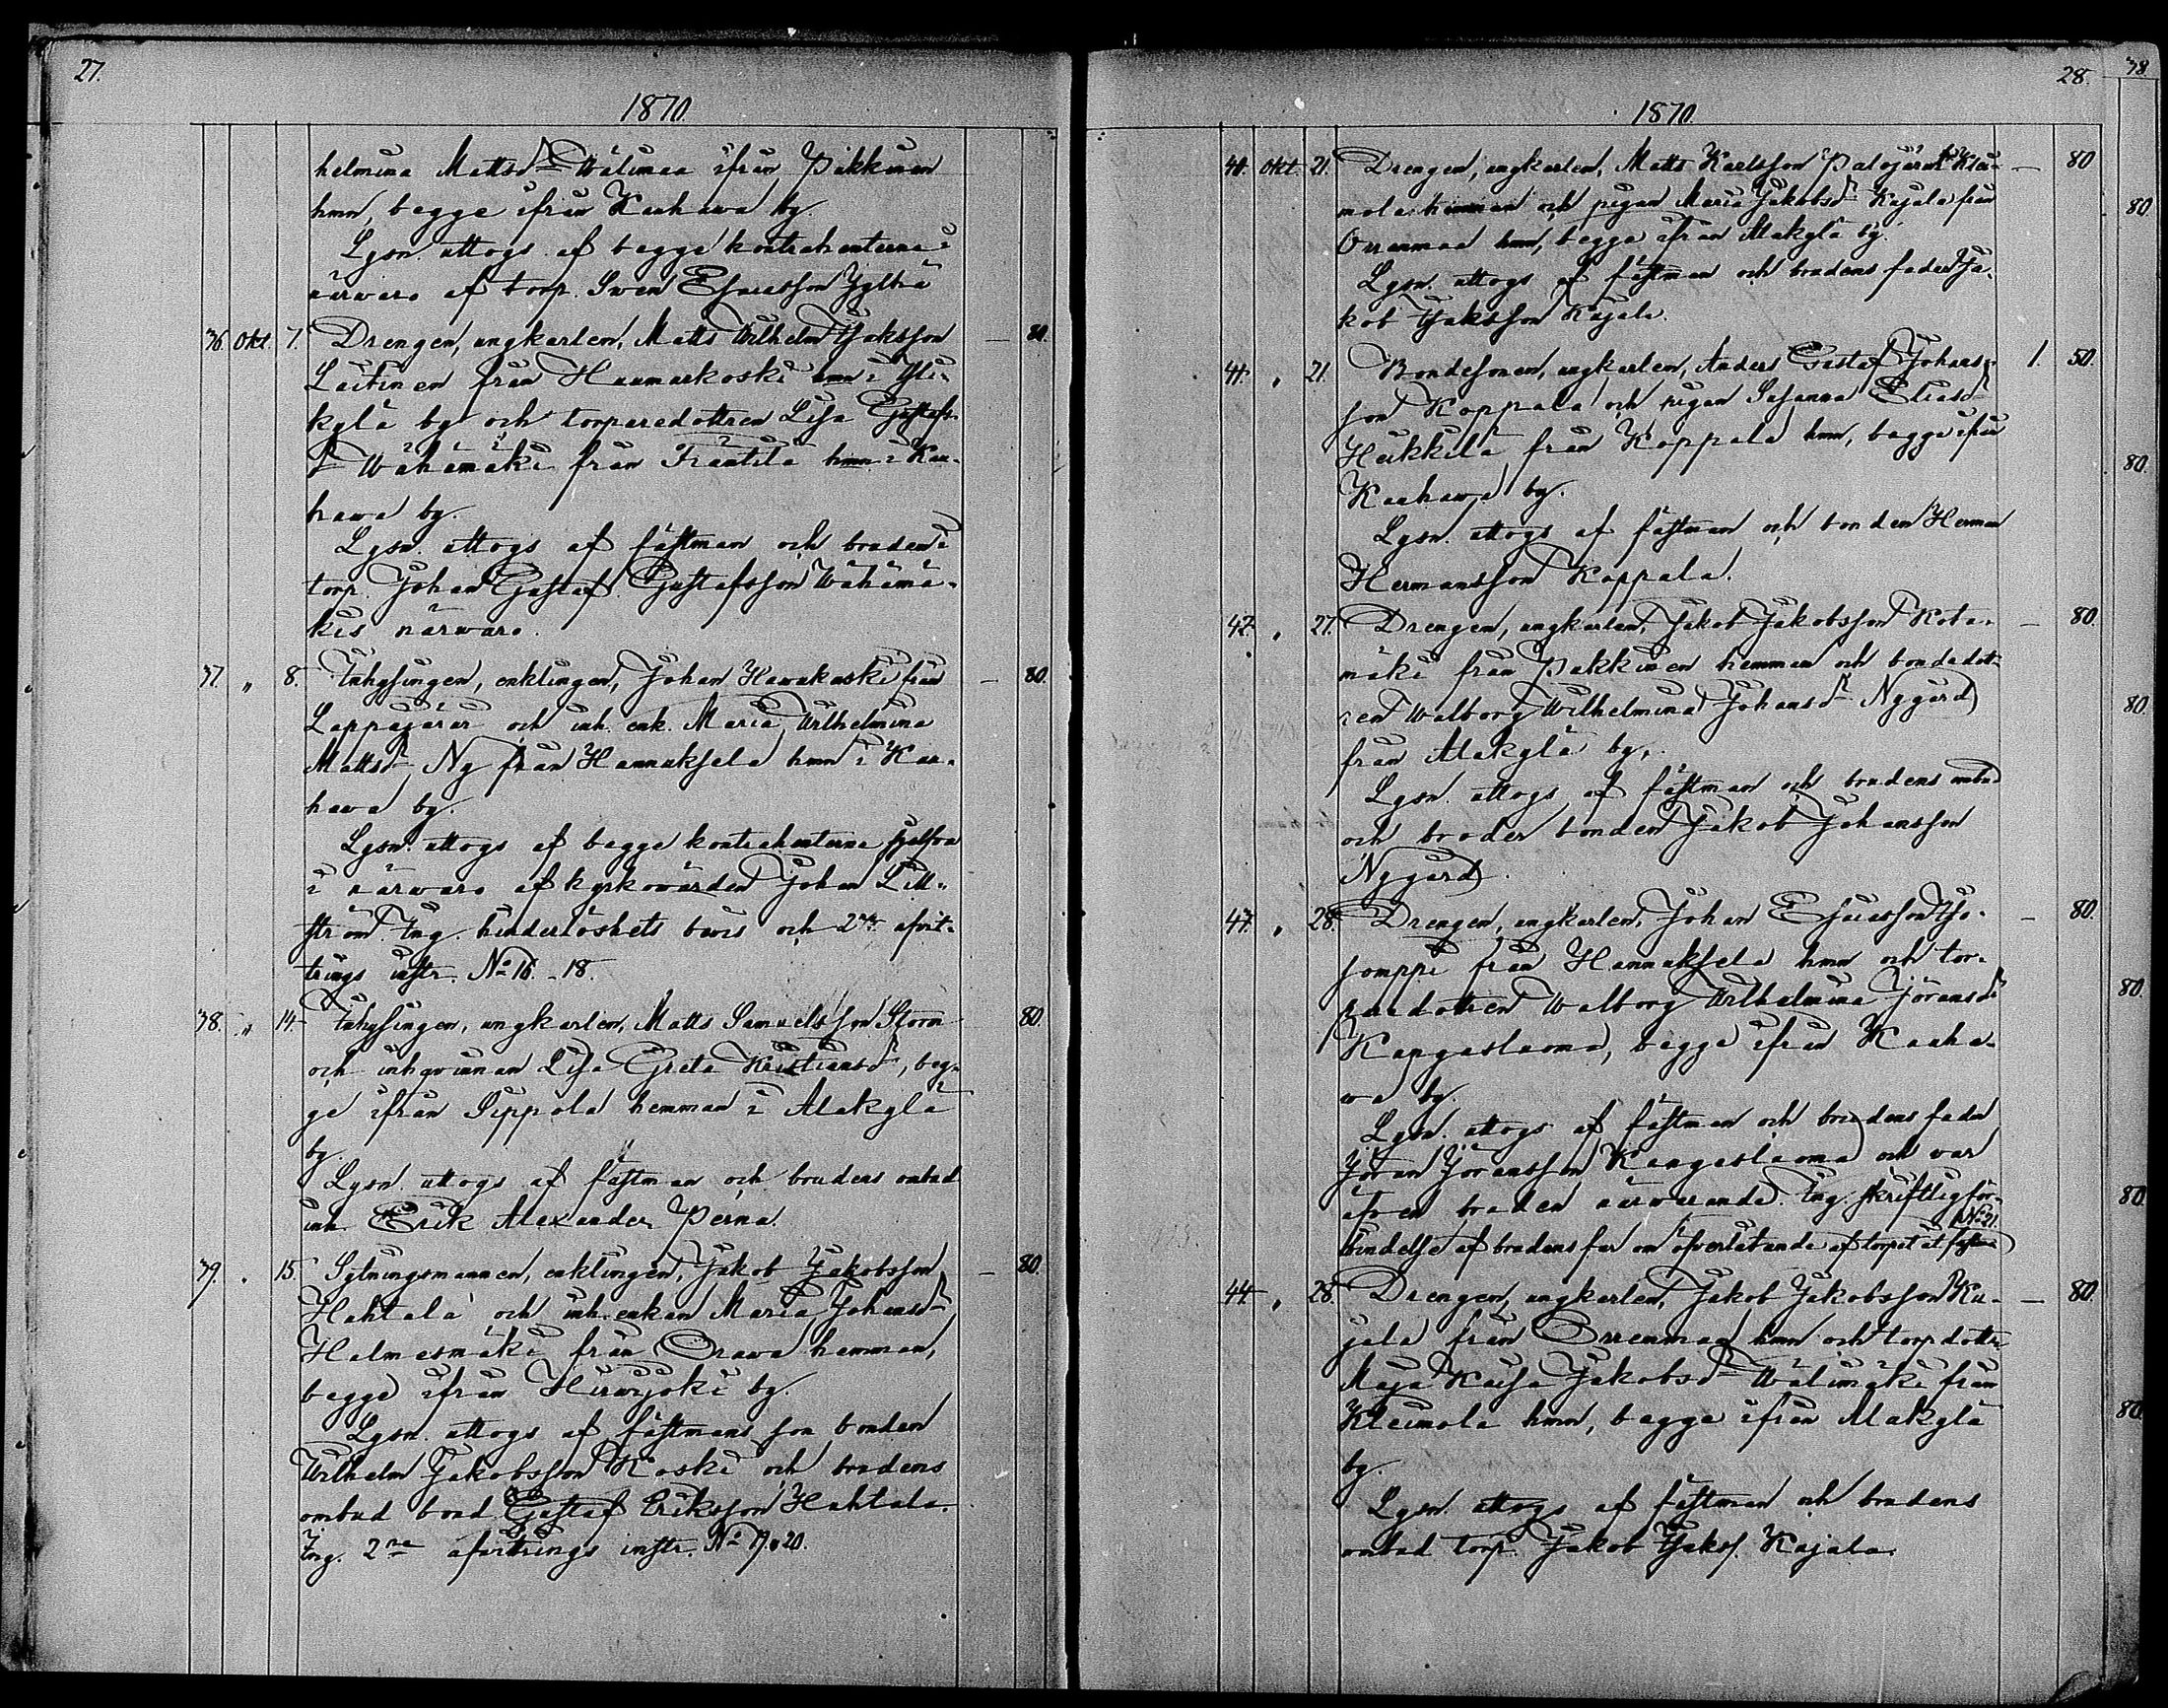 27.
1870.
helmina Mattsdr Wälimaa ifrån Pukkinen
hmn, begge ifrån Kauhawa by.
Lysn. uttogs af begge kontrahenterne i
närvaro af torp. Swen Esaiasson Ylihä
36. Okt. 7. Drengen, ungkarlen, Matts Wilhelm Isaksson — 80.
Laitinen från Hanmarkoski hmn i Yli-
kylä by och torparedottren Lisa Gustafs-
dr Wähämäki från Franttilä hmn i Kau-
hawa by.
Lysn. uttogs af fästman och bruden i
torp. Johan Gustaf Gustafsson Wähämä-
kis närvaro.
37. " 8. Inhysingen, enklingen, Johan Hawukoski från — 80.
Lappajärvi och inh. enk. Maria Wilhelmina
Mattsdr Ny från Hannuksela hmn i Kau-
hawa by.
Lysn. uttogs af begge kontrahenterne sjelfva
i närvaro af kyrkovärden Johan Lill-
ström. Ing. hinderlöshets bevis och 2ne afvit-
trings instr. No 16 - 18.
38. " 14. Inhysingen, ungkarlen, Matts Samuelsson Storm — 80.
och inhqvinnan Lisa Greta Kristiansdr, beg-
ge ifrån Sippola hemman i Alakylä
by.
Lysn. uttogs af fästman och brudens ombud
inh. Erik Alexander Perna.
39. " 15. Sytningsmannen, enklingen, Jakob Jakobsson — 80.
Hahtala och inh. enkan Maria Johansdr
Helmesmäki från Orawa hemman,
begge ifrån Hirvijoki by.
Lysn. uttogs af fästmans son bonden
Wilhelm Jakobsson Koski och brudens
ombud bond. Gustaf Eriksson Hahtala.
Ing. 2ne afvittrings instr. No 19 o 20.
28.
1870.
40. Okt. 21. Drengen, ungkarlen, Matts Karlsson Palojärvi fr. Klei- — 80
mola hemman och pigan Maria Jakobsdr Kajala från
Orrenmaa hmn, begge ifrån Alakylä by.
Lysn. uttogs af fästman och brudens fader Ja-
kob Isaksson Kajala.
41. " 21. Bondesonen, ungkarlen, Anders Gustaf Johans- 1. 50.
son Koppala och pigan Susanna Eliasdr
Heikkilä från Koppala hmn, begge ifrån
Kauhawa by.
Lysn. uttogs af fästman och bonden Herman
Hermansson Koppala.
42. " 27. Drengen, ungkarlen, Jakob Jakobsson Kota- — 80.
mäki från Pukkinen hemman och bondedott-
ren Walborg Wilhelmina Johansdr Nygård
från Alakylä by.
Lysn. uttogs af fästman och brudens ombud
och broder bonden Jakob Johansson
Nygård.
43. " 28. Drengen, ungkarlen, Johan Esaiasson Iso- — 80.
somppi från Hannuksela hmn och tor-
paredottren Walborg Wilhelmina Jöransdr
Kangasluoma, begge ifrån Kauha-
wa by.
Lysn. uttogs af fästman och brudens fader
Jöran Jöransson Kangasluoma och var
äfven bruden närwarande. Ing. skriftlig för-
bindelse af brudens far om öfverlåtande af torpet åt fästm. No 21.
44. " 28. Drengen, ungkarlen, Jakob Jakobsson Ka- — 80.
jala från Orrenmaa hmn och torpdottr
Maja Kaisa Jakobsdr Wälimäki från
Kleimola hmn, begge ifrån Alakylä
by.
Lysn. uttogs af fästman och brudens
ombud torp. Jakob Isakss. Kajala.
38
80
80.
80.
80.
80.
80.